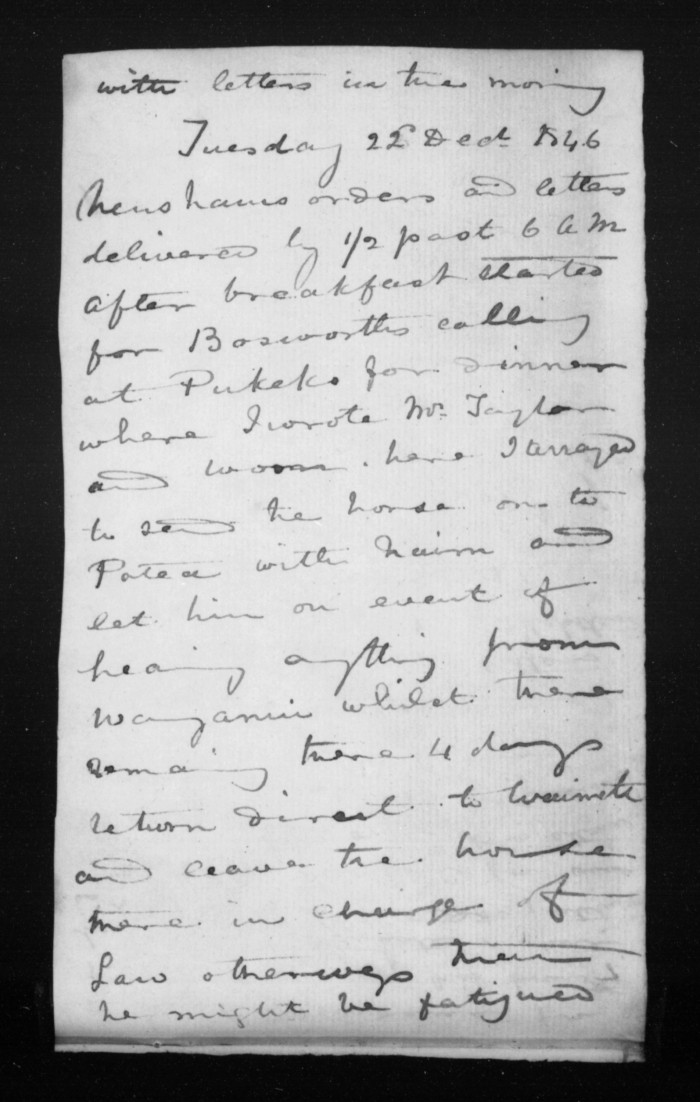 with letters in the morning
Tuesday 22d Decr 1846
Henshaws orders and letters
delivered by 1/2 past 6 A M
after breakfast started
for Bosworths calling
at Pukeko for dinner
where I wrote Mr Taylor
and . here I arraged
to send the horse on to
Patea with Nairn and
let him on event of
hearing anything from
Wanganui whilst there
remaing there 4 days
return direct to Waimate
and leave the horse
there in charge of
Law otherways
he might be fatigued